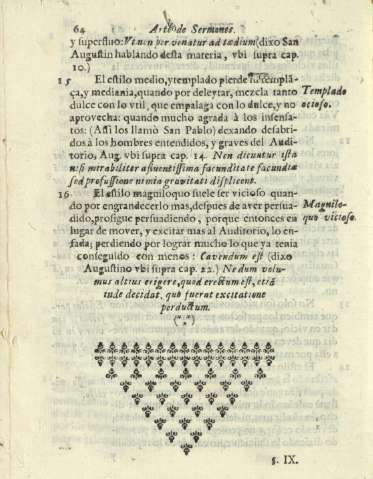 64 Arte de Sermones.
y superfluo: Vt non per venatur ad tædium (dixo San
Augustin hablando desta materia, vbi supra cap.
10.)
15 El estilo medio, y templado pierde su templã-
ça, y mediania, quando por deleytar, mezcla tanto
Templado
dulce con lo vtil, que empalaga con lo dulce, y no
octoso.
aprovecha: quando mucho agrada à los insensa-
tos: (Assi los llamò San Pablo) dexando desabri-
dos à los hombres entendidos, y graves del Audi-
torio, Aug. vbi supra cap. 14. Non dicuntur ista
nisi mirabiliter afluentissima facunditate facunditæ
sed profussione nimio gravitati displicent.
16 El estilo magniloquo suele ser vicioso quan-
do por engrandecerlo mas, despues de aver persua-
Magnilo-
dido, prosigue persuadiendo, porque entonces en
quo vicioso.
lugar de mover, y excitar mas al Auditorio, lo en-
fada; perdiendo por lograr mucho lo que ya tenia
conseguido con menos: Cavendum est (dixo
Augustino vbi supra cap. 22.) Ne dum volu-
mus altius erigere, quod erectum est, etiã
inde decidat, quò fuerat excitatione
perductum.
(**)
§. IX.